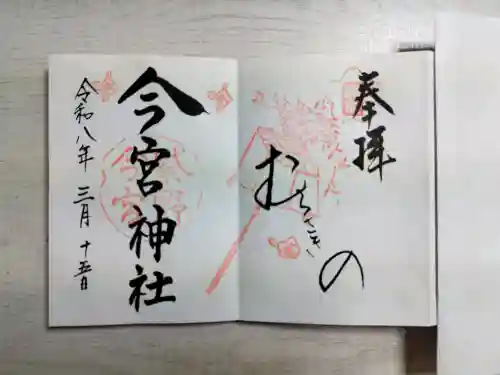 奉拝
むらさきの
今宮神社
令和八年 三月 十五日